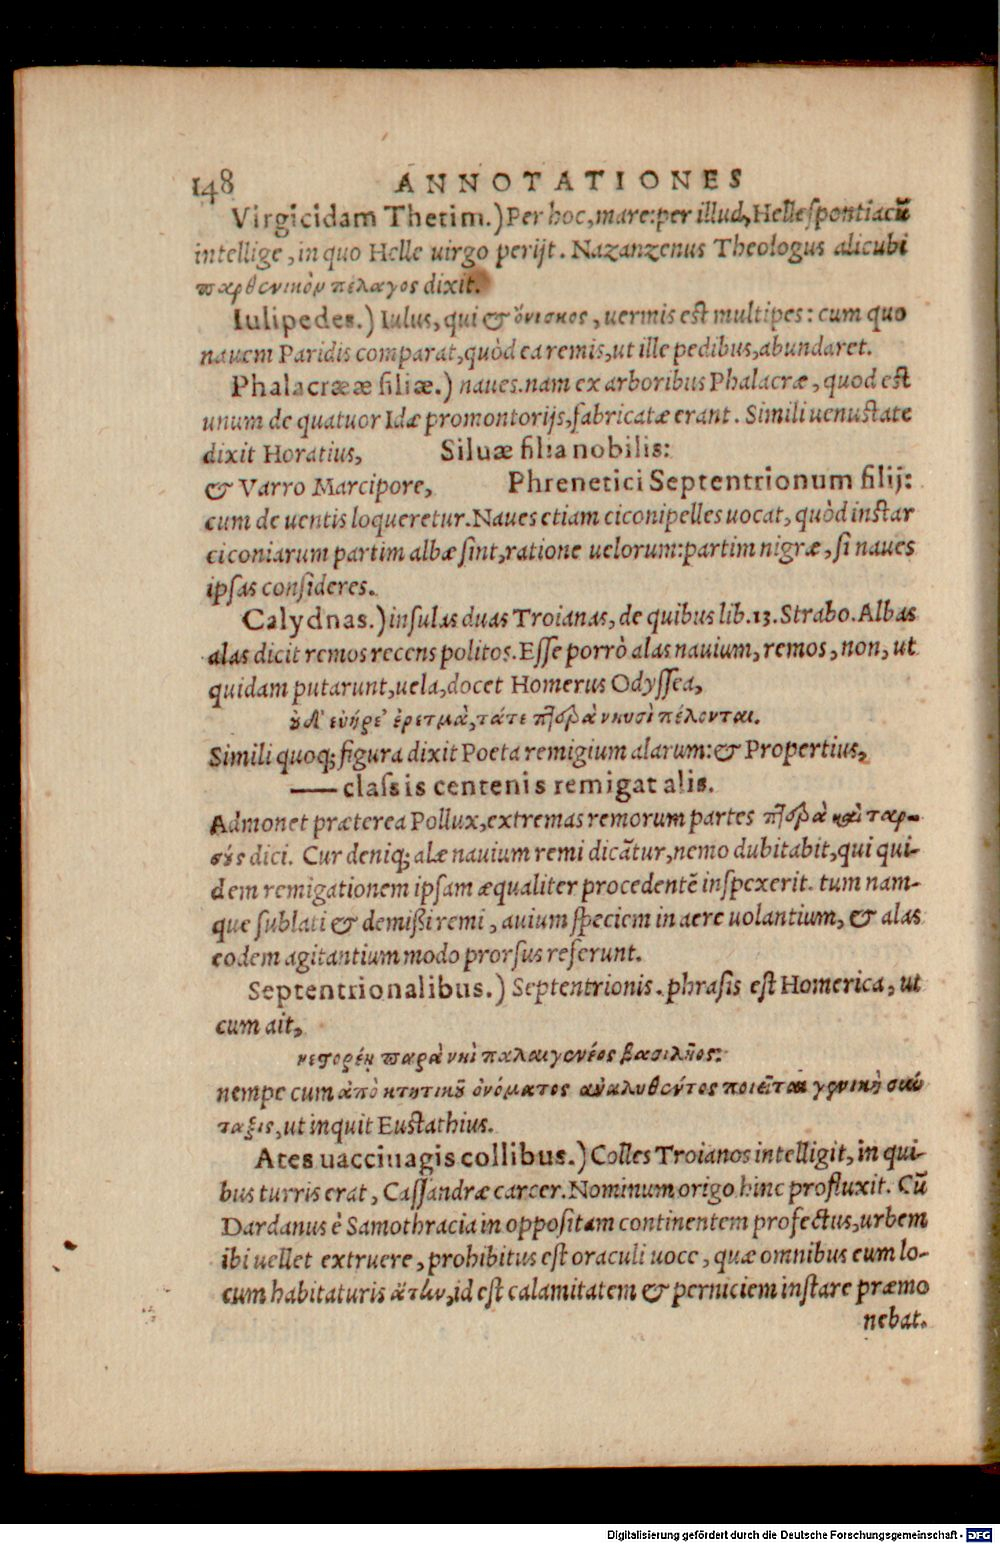 148 ANNOTATIONES
Virgicidam Thetim.) Per hoc, mare: per illud, Hellespontiacũ
intellige, in quo Helle uirgo perijt. Nazanzenus Theologus alicubi
παρθενικὸν πέλαγος dixit.
Iulipedes.) Iulus, qui & ὄνισκος, uermis est multipes: cum quo
nauem Paridis comparat, quòd ea remis, ut ille pedibus, abundaret.
Phalacrææ filiæ.) naues. nam ex arboribus Phalacræ, quod est
unum de quatuor Idæ promontorijs, fabricatæ erant. Simili uenustate
dixit Horatius, Siluæ filia nobilis:
& Varro Marcipore, Phrenetici Septentrionum filij:
cum de uentis loqueretur. Naues etiam ciconipelles uocat, quòd instar
ciconiarum partim albæ sint, ratione uelorum: partim nigræ, si naues
ipsas consideres.
Calydnas.) insulas duas Troianas, de quibus lib. 13. Strabo. Albas
alas dicit remos recens politos. Esse porrò alas nauium, remos, non, ut
quidam putarunt, uela, docet Homerus Odyssea,
ὀδ' εὐήρε' ἐρετμὰ, τάτε πτερὰ νηυσὶ πέλονται.
Simili quoq; figura dixit Poeta remigium alarum: & Propertius,
— classis centenis remigat alis.
Admonet præterea Pollux, extremas remorum partes πτερὰ καὶ ταρ-
σὺς dici. Cur deniq; alæ nauium remi dicãtur, nemo dubitabit, qui qui-
dem remigationem ipsam æqualiter procedentẽ inspexerit. tum nam-
que sublati & demißi remi, auium speciem in aere uolantium, & alas
eodem agitantium modo prorsus referunt.
Septentrionalibus.) Septentrionis. phrasis est Homerica, ut
cum ait,
νεστορέῃ παρὰ νηὶ παλαιγενέος βασιλῆος:
nempe cum ἀπὸ κτητικοῦ ὀνόματος ἀναλυθέντος ποιεῖται γενικὴ συν
ταξις, ut inquit Eustathius.
Ates uacciuagis collibus.) Colles Troianos intelligit, in qui-
bus turris erat, Cassandræ carcer. Nominum origo hinc profluxit. Cũ
Dardanus è Samothracia in oppositam continentem profectus, urbem
ibi uellet extruere, prohibitus est oraculi uoce, quæ omnibus eum lo-
cum habitaturis ἄτην, id est calamitatem & perniciem instare præmo
nebat.
Digitalisierung gefördert durch die Deutsche Forschungsgemeinschaft - DFG